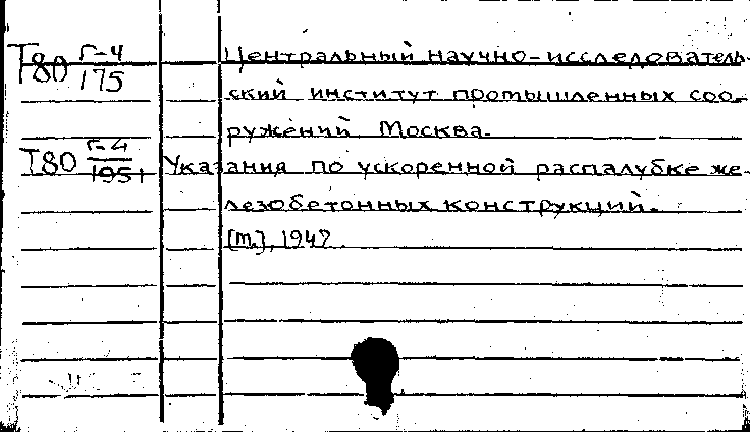 Т80 Г-4/175 Центральный научно-исследователь-
ский институт промышленных соо-
ружений, Москва.
Т80 Г-4/1951 Указания по ускоренной распалубке же-
лезобетонных конструкций.
[М.], 1947.